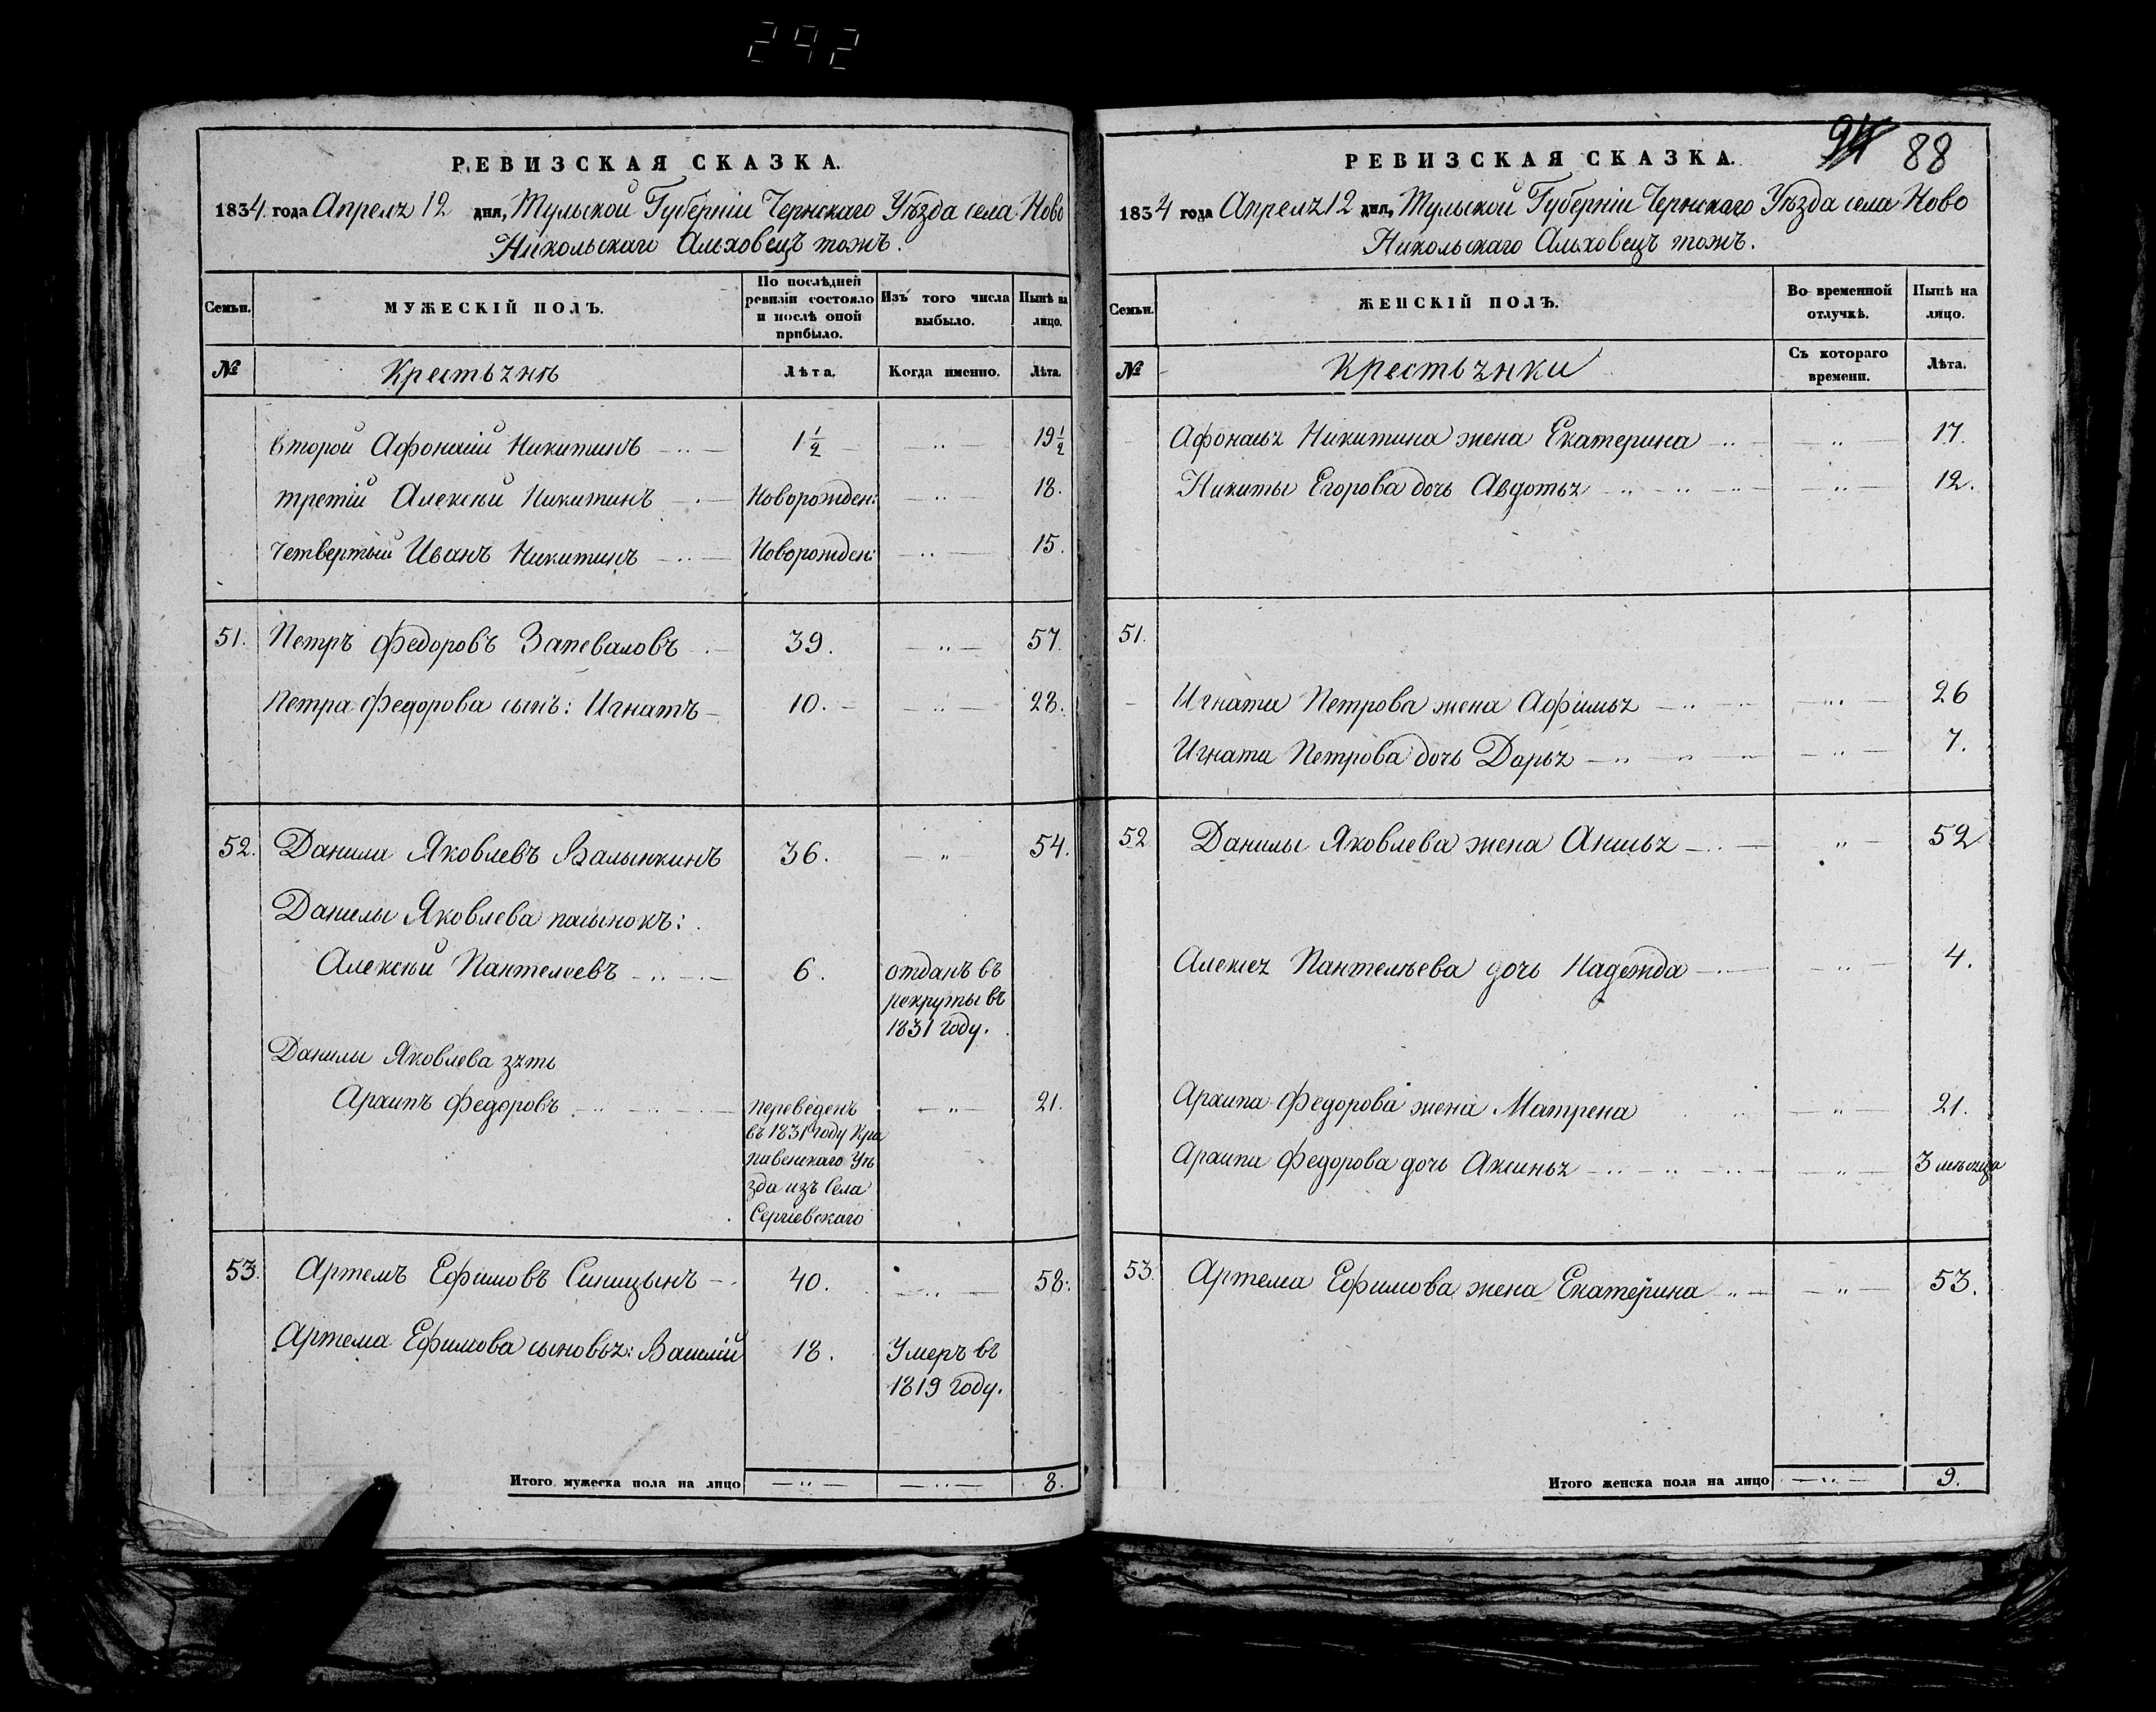 242
РЕВИЗСКАЯ СКАЗКА.
1834 года Апреля 12 дня, Тульской Губернiи Чернскаго Уѣзда села Ново
Никольскаго Альховецъ тожъ.
Семьи.
МУЖЕСКIЙ ПОЛЪ.
По послѣдней ревизiи состояло и послѣ оной прибыло.
Изъ того числа выбыло.
Нынѣ на лицо.
№
Крестьянѣ
Лѣта.
Когда именно.
Лѣта.
второй Афонасiй Никитинъ 1½ — „ — 19½
третiй Алексѣй Никитинъ Новорожден: — „ 18.
четвертый Иванъ Никитинъ Новорожден: — „ — 15.
51. Петръ Федоровъ Запеваловъ 39. — „ — 57.
Петра Федорова сынъ: Игнатъ 10. — „ — 28.
52. Данила Яковлевъ Валынкинъ 36. — „ — 54.
Данилы Яковлева пасынокъ:
Алексѣй Пантелеевъ 6. отданъ въ
рекруты въ
1831 году.
Данилы Яковлева зять
Архипъ Федоровъ переведенъ — „ — 21.
въ 1831 году Кра
пивенскаго Уѣ
зда изъ Села
Сергiевскаго
53. Артемъ Ефимовъ Синицынъ 40. — „ — 58.
Артема Ефимова сыновья: Василiй 18. Умеръ въ
1819 году.
Итого мужеска пола на лицо — „ — — „ — 8.
94 88
РЕВИЗСКАЯ СКАЗКА.
1834 года Апреля 12 дня, Тульской Губернiи Чернскаго Уѣзда села Ново
Никольскаго Альховецъ тожъ.
Семьи.
ЖЕНСКIЙ ПОЛЪ.
Во временной отлучкѣ.
Нынѣ на лицо.
№
Крестьянки
Съ котораго времени.
Лѣта.
Афонасья Никитина жена Екатерина — „ — 17.
Никиты Егорова дочь Авдотья — „ — 12.
51.
Игната Петрова жена Афимья — „ — 26
Игната Петрова дочь Дарья — „ — 7.
52 Данилы Яковлева жена Анисья „ — 52
Алексея Пантелѣева дочь Надежда — „ — 4.
Архипа Федорова жена Матрена — „ — 21.
Архипа Федорова дочь Аксинья — „ — 3 месяца
53. Артема Ефимова жена Екатерина — „ — 53.
Итого женска пола на лицо — „ — 9.